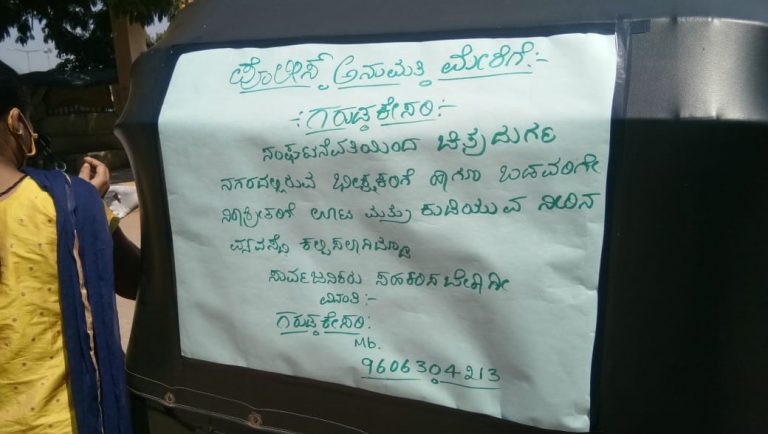 ಪೊಲೀಸ್ ಅನುಮತಿ ಮೇರೆಗೆ:-
-: ಗರುಡಕೇಸರಿ:-
ಸಂಘಟನೆವತಿಯಿಂದ ಚಿತ್ರದುರ್ಗ
ನಗರದಲ್ಲಿರುವ ಭಿಕ್ಷುಕರಿಗೆ ಹಾಗೂ ಬಡವರಿಗೇ
ನಿರಾಶ್ರೀತರಿಗೆ ಊಟ ಮತ್ತು ಕುಡಿಯುವ ನೀರಿನ
ವ್ಯವಸ್ಥೆ ಕಲ್ಪಿಸಲಾಗಿದ್ದು
ಸಾರ್ವಜನಿಕರು ಸಹಕರಿಸಬೇಕಾಗೀ
ವಿನಂತಿ:-
ಗರುಡಕೇಸರಿ:
Mb.
9606304213